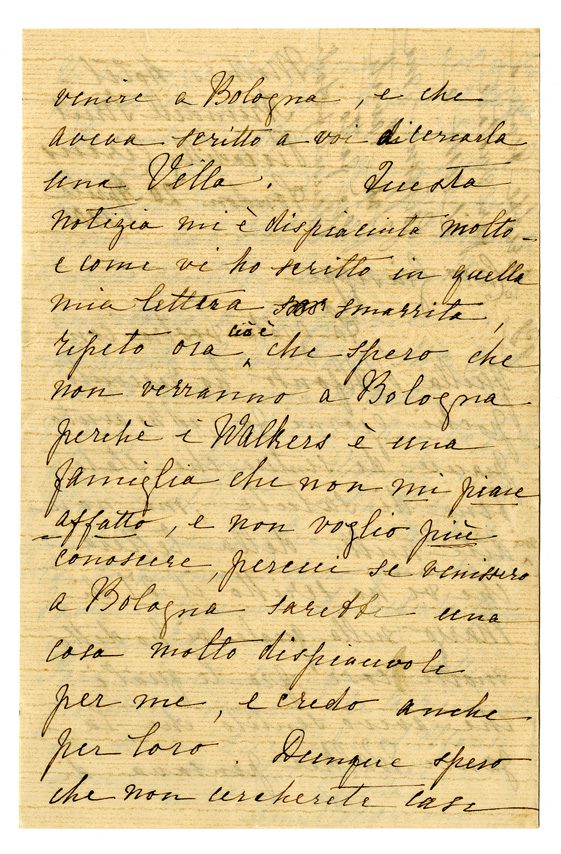 venire a Bologna, e che
aveva scritto a voi di cercarla
una Villa. Questa
notizia mi è dispiaciuta molto -
e come vi ho scritto in quella
mia lettera smarrita,
ripeto ora cioè che spero che
non verranno a Bologna
perchè i Walkers è una
famiglia che non mi piace
affatto, e non voglio più
conoscere, percui se venissero
a Bologna sarebbe una
cosa molto dispiacevole
per me, e credo anche
per loro. Dunque spero
che non cercherete case